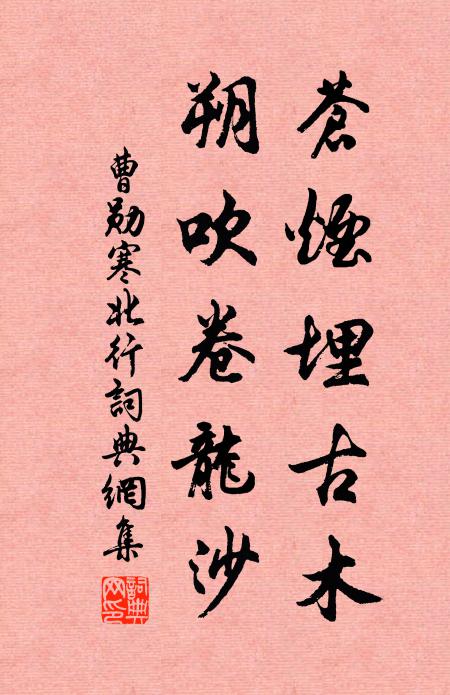 蒼煙埋古木
朔吹卷龍沙
曹勛寒北行詞典網集
詞典
网印